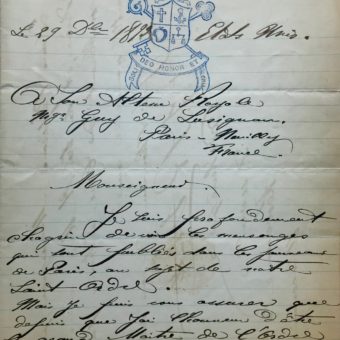 DEO HONOR ET
Le 29 Dbre 189 Etats Unis.
A Son Altesse Royale
Mgr Guy de Lusignan.
Paris - Neuilly
France.
Monseigneur.
Je suis profondement
chagrin de voir les mensonges
qui sont publiés dans les journaux
de Paris, au sujet de notre
Saint Ordre.
Mais je puis vous assurer que
depuis que j'ai l'honneur d'être
Grand Maître de l'Ordre